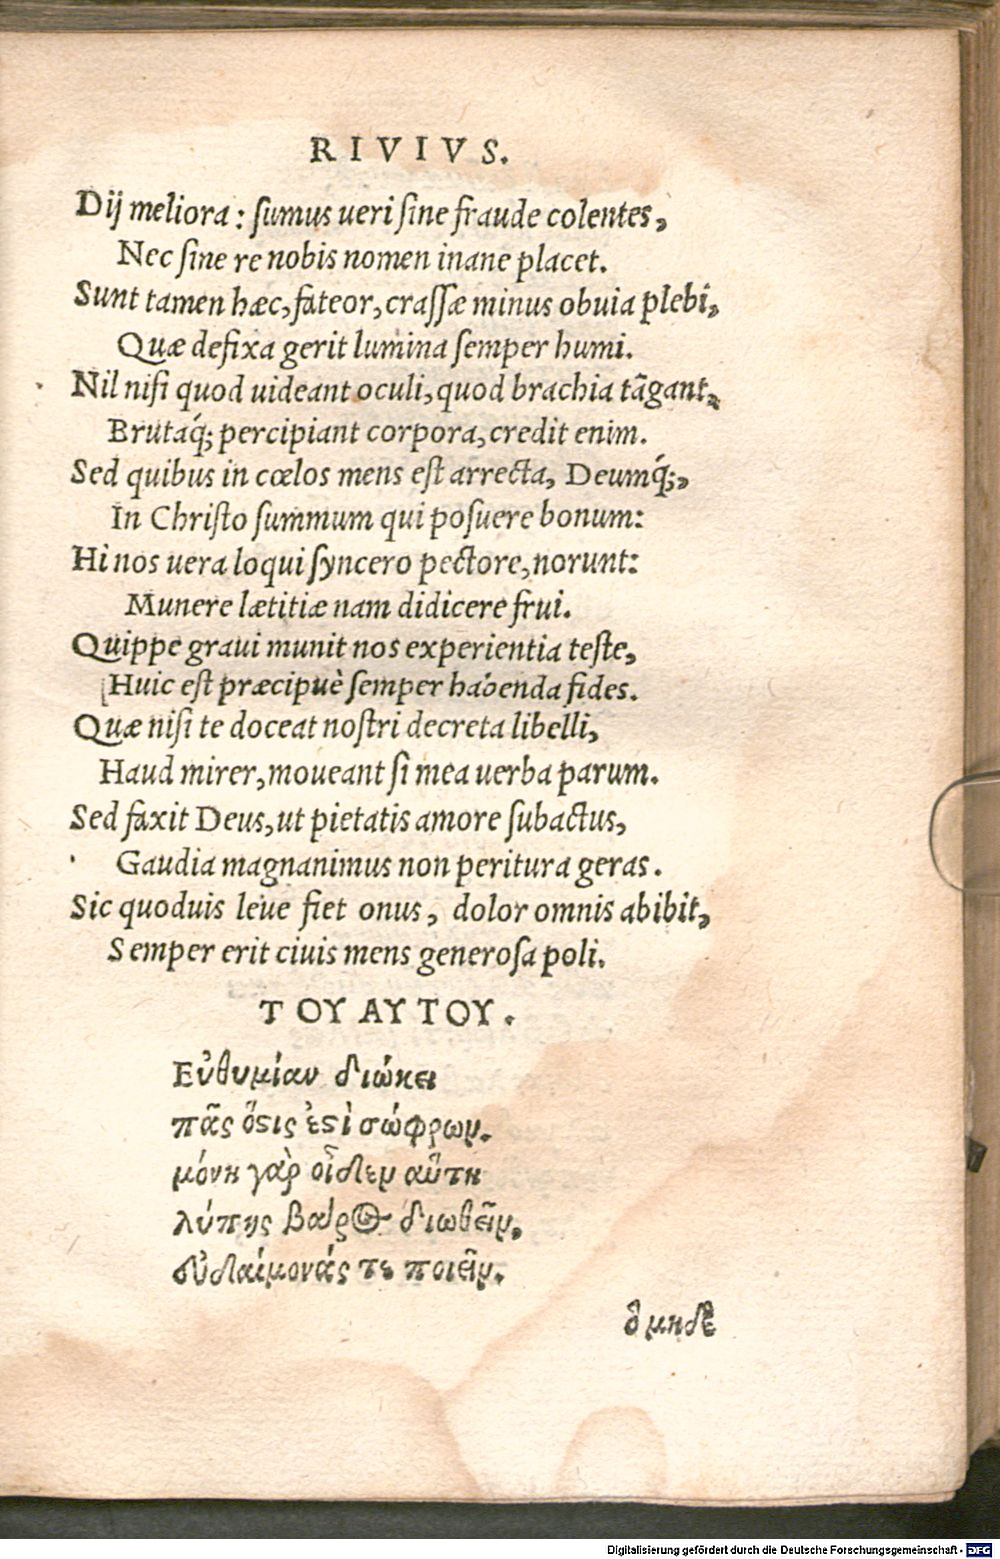 RIVIVS.
Dij meliora: ſumus ueri ſine fraude colentes,
Nec ſine re nobis nomen inane placet.
Sunt tamen hæc, fateor, craſſæ minus obuia plebi,
Quæ defixa gerit lumina ſemper humi.
Nil niſi quod uideant oculi, quod brachia tãgant,
Brutaq́; percipiant corpora, credit enim.
Sed quibus in cœlos mens eſt arrecta, Deumq́;,
In Chriſto ſummum qui poſuere bonum:
Hi nos uera loqui ſyncero pectore, norunt:
Munere lætitiæ nam didicere frui.
Quippe graui munit nos experientia teſte,
Huic eſt præcipuè ſemper habenda fides.
Quæ niſi te doceat noſtri decreta libelli,
Haud mirer, moueant ſi mea uerba parum.
Sed faxit Deus, ut pietatis amore ſubactus,
Gaudia magnanimus non peritura geras.
Sic quoduis leue fiet onus, dolor omnis abibit,
Semper erit ciuis mens generoſa poli.
ΤΟΥ ΑΥΤΟΥ.
Εὐθυμίαν διώκει
πᾶς ὅϛις ἐϛὶ σώφρων.
μόνη γὰρ οἶδεν αὕτη
λύπης βάρος διωθεῖν,
εὐδαίμονάς τε ποιεῖν.
ὃ μηδὲ
Digitalisierung gefördert durch die Deutsche Forschungsgemeinschaft - DFG